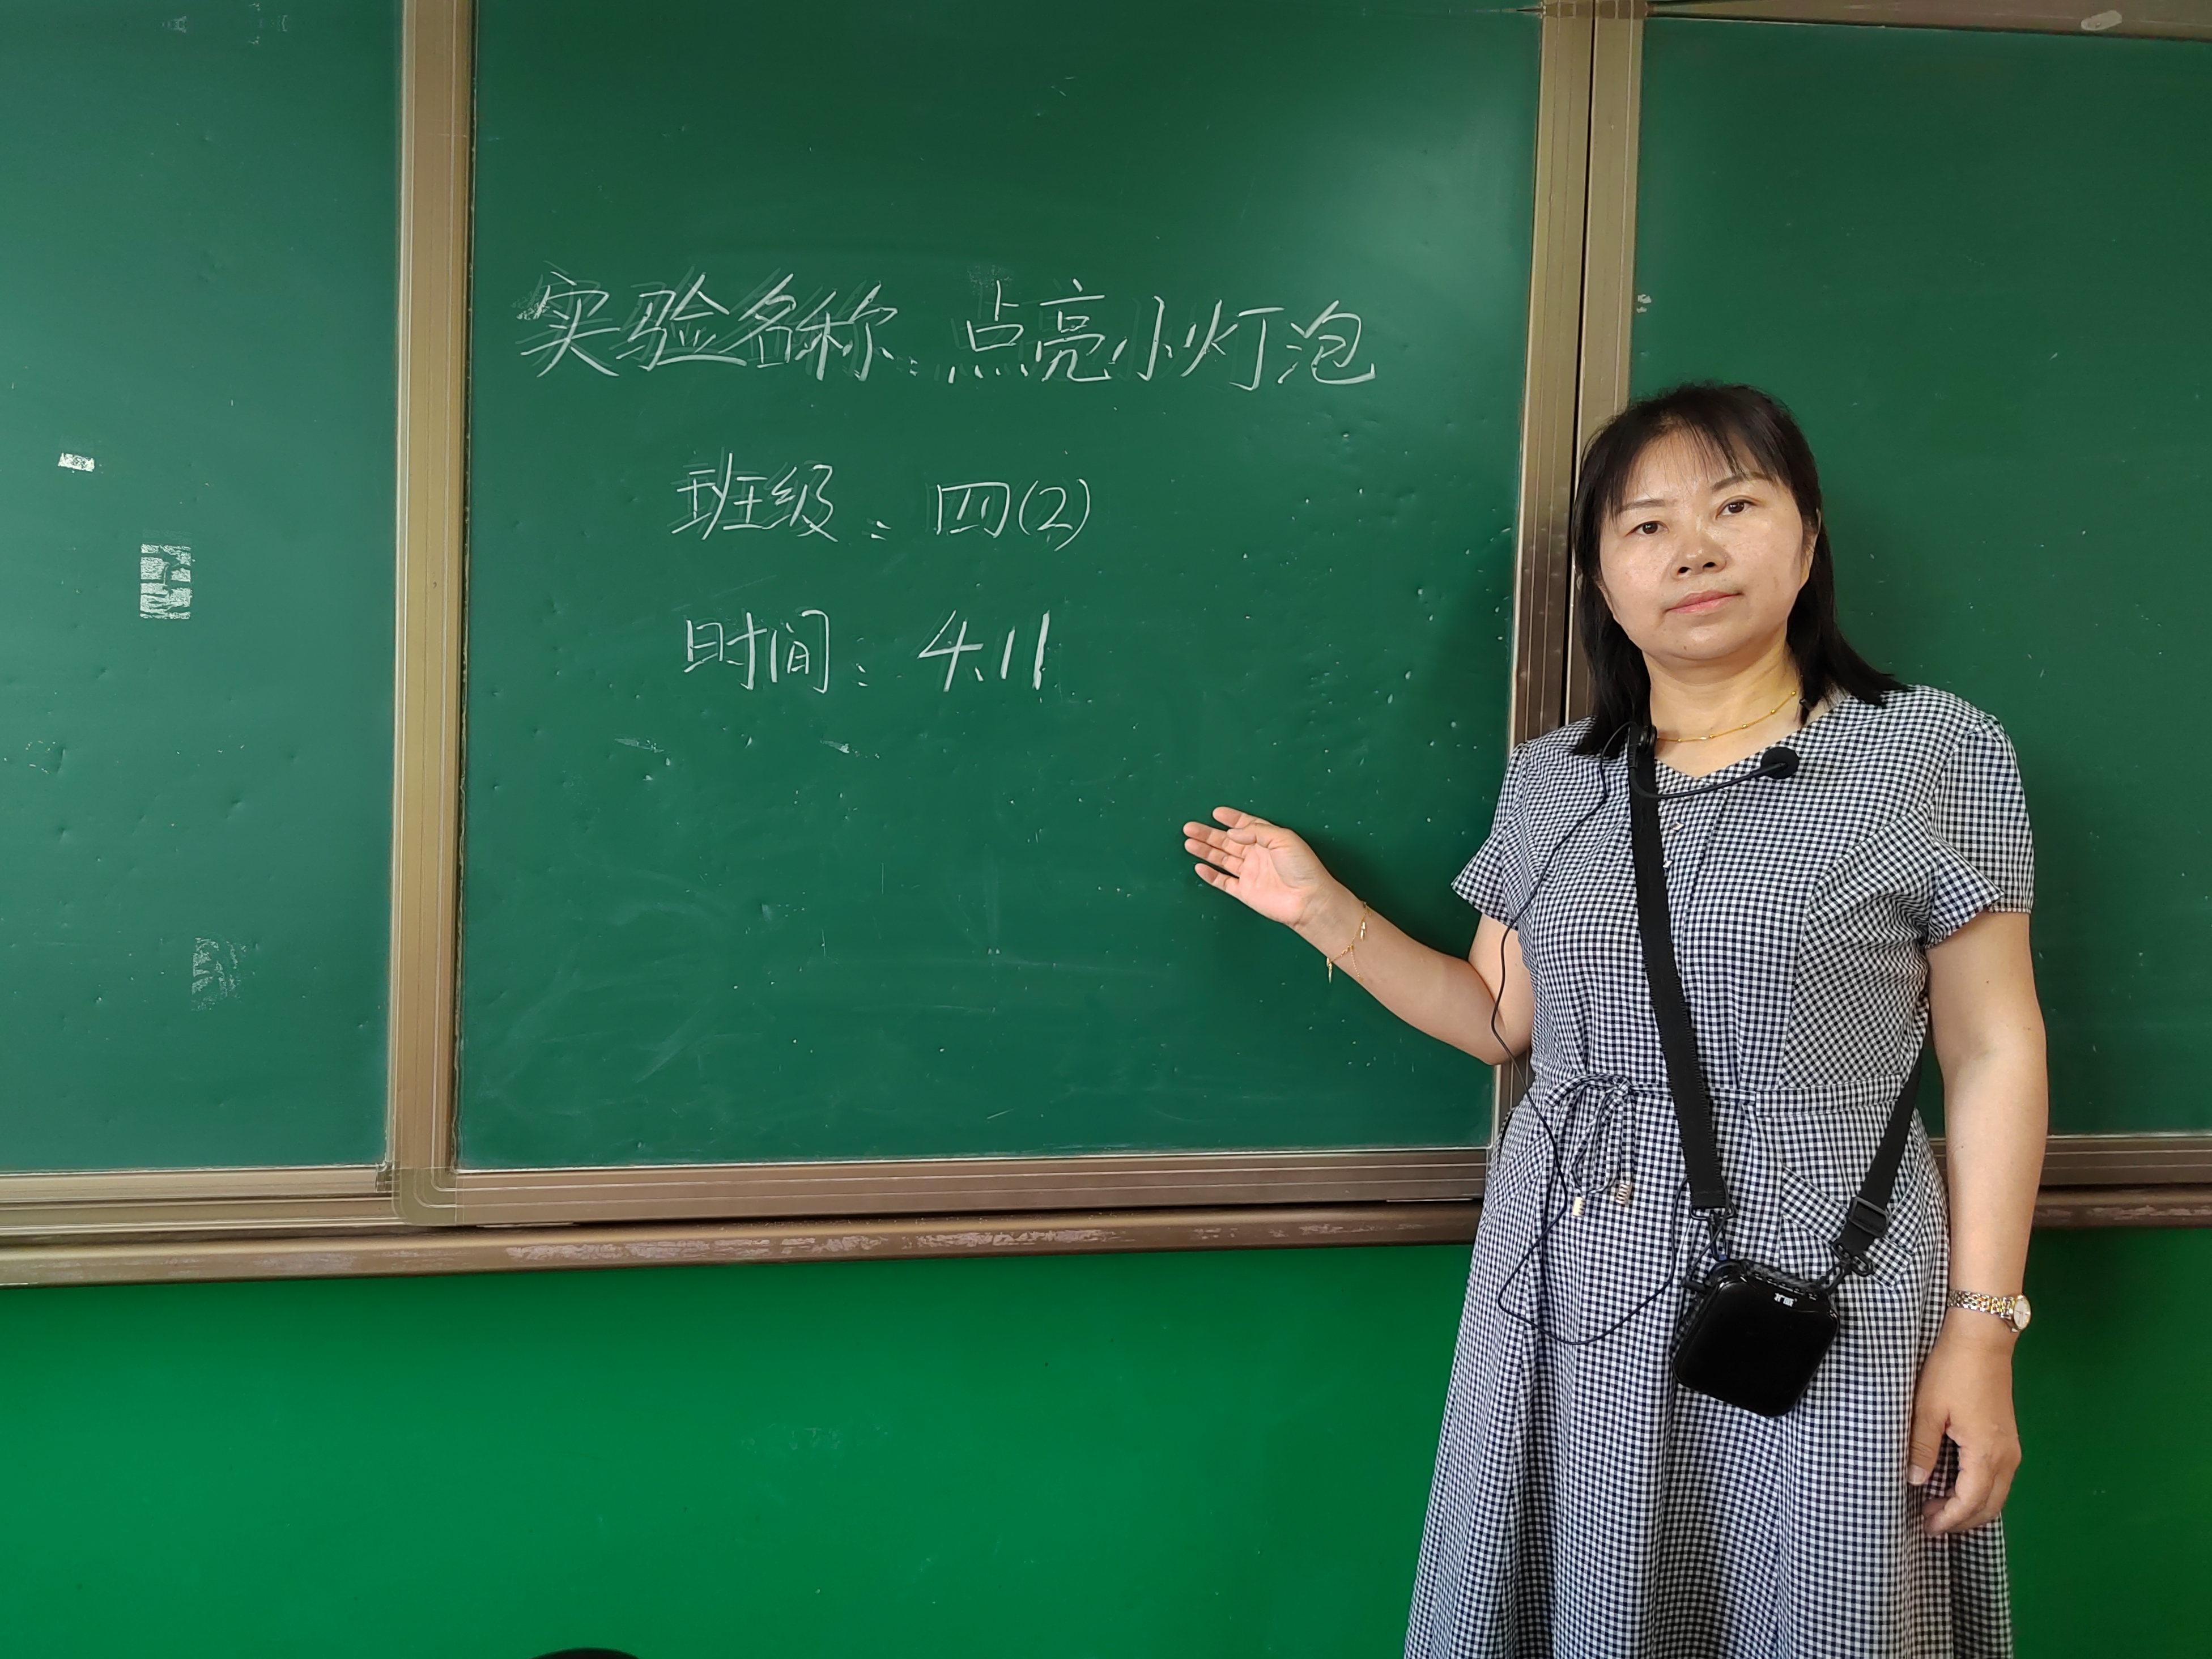 实验名称：点亮小灯泡
班级：四(2)
时间：4.11